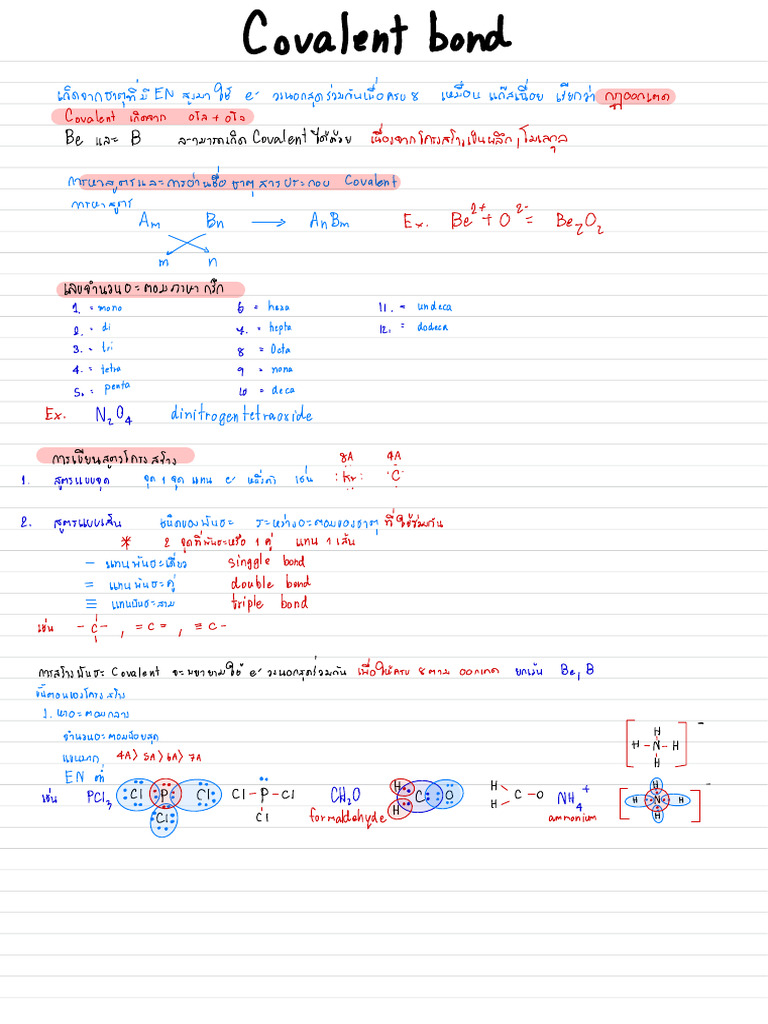 Covalent bond
เกิดจากธาตุที่มี EN สูงมาใช้ e⁻ วงนอกสุดร่วมกันเพื่อครบ 8 เหมือน แก๊สเฉื่อย เรียกว่า กฎออกเตต
Covalent เกิดจาก อโล + อโล
Be และ B สามารถเกิด Covalent ได้ด้วย เนื่องจากโครงสร้างเป็นผลึก, โมเลกุล
การหาสูตรและการอ่านชื่อ ธาตุ สารประกอบ Covalent
การหาสูตร
Am Bn → AnBm Ex. Be²⁺ + O²⁻ = Be₂O₂
m n
เลขจำนวนอะตอมภาษากรีก
1. = mono 6 = hexa 11. = undeca
2. = di 7. = hepta 12. = dodeca
3. = tri 8 = Octa
4. = tetra 9 = nona
5. = penta 10 = deca
Ex. N₂O₄ dinitrogentetraoxide
การเขียนสูตรโครงสร้าง 8A 4A
1. สูตรแบบจุด จุด 1 จุด แทน e⁻ หนึ่งตัว เช่น Kr C
2. สูตรแบบเส้น ชนิดของพันธะ ระหว่างอะตอมของธาตุ ที่ใช้ร่วมกัน
* 2 จุดที่พันธะหรือ 1 คู่ แทน 1 เส้น
— แทนพันธะเดี่ยว singgle bond
= แทนพันธะคู่ double bond
≡ แทนพันธะสาม triple bond
เช่น -C-, =C=, ≡C-
การสร้างพันธะ Covalent จะพยายามใช้ e⁻ วงนอกสุดร่วมกัน เพื่อให้ครบ 8 ตาม ออกเตต ยกเว้น Be, B
ขั้นตอนของโครงสร้าง
1. หาอะตอมกลาง
จำนวนอะตอมน้อยสุด
แขนมาก 4A > 5A > 6A > 7A
EN ต่ำ
เช่น PCl₃ Cl P Cl Cl Cl-P-Cl Cl CH₂O H H C O H H C-O NH₄⁺ H H N H H ⁻
formaldehyde ammonium
H H-N-H H ⁻